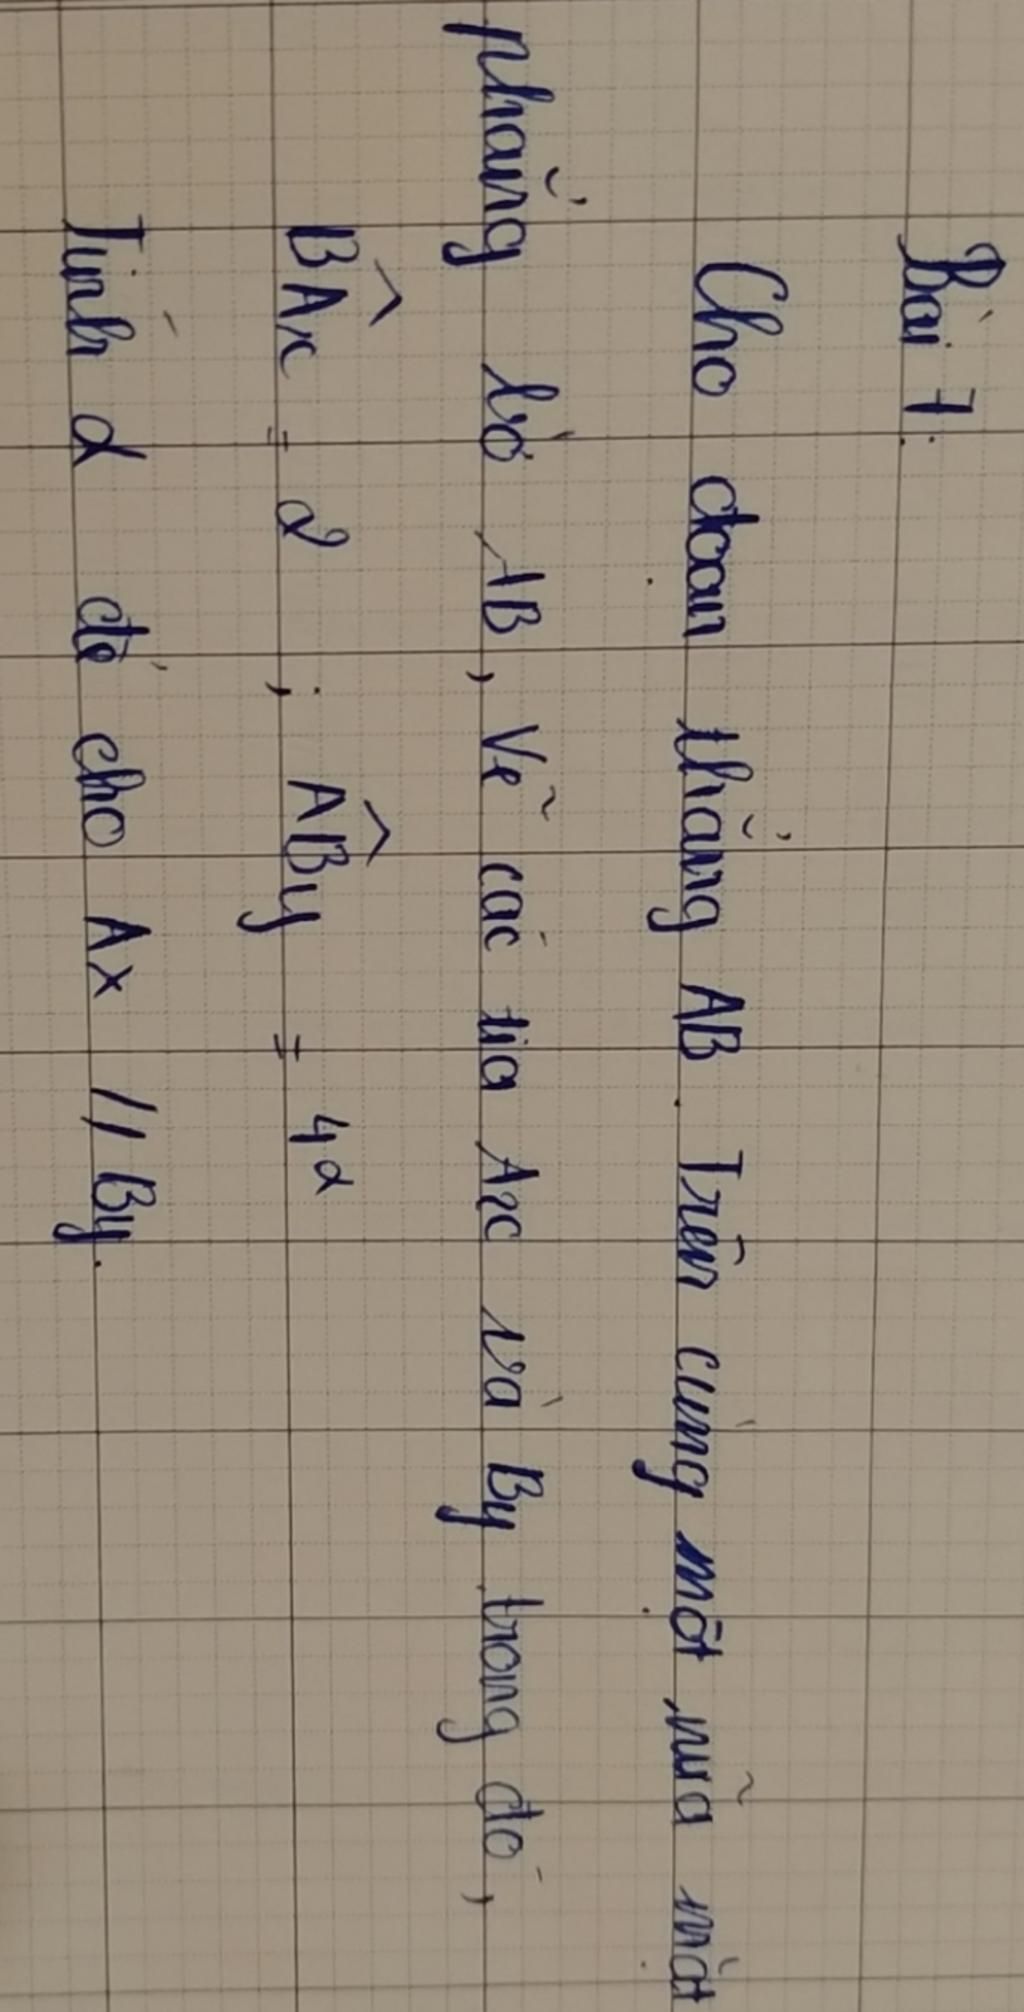 Bài 7.
Cho đoạn thẳng AB. Trên cùng một nữa mặt
phẳng bờ AB, vẽ các tia Ax và By trong đó,
BAx = α ; ABy = 4α
Tính α để cho Ax // By.